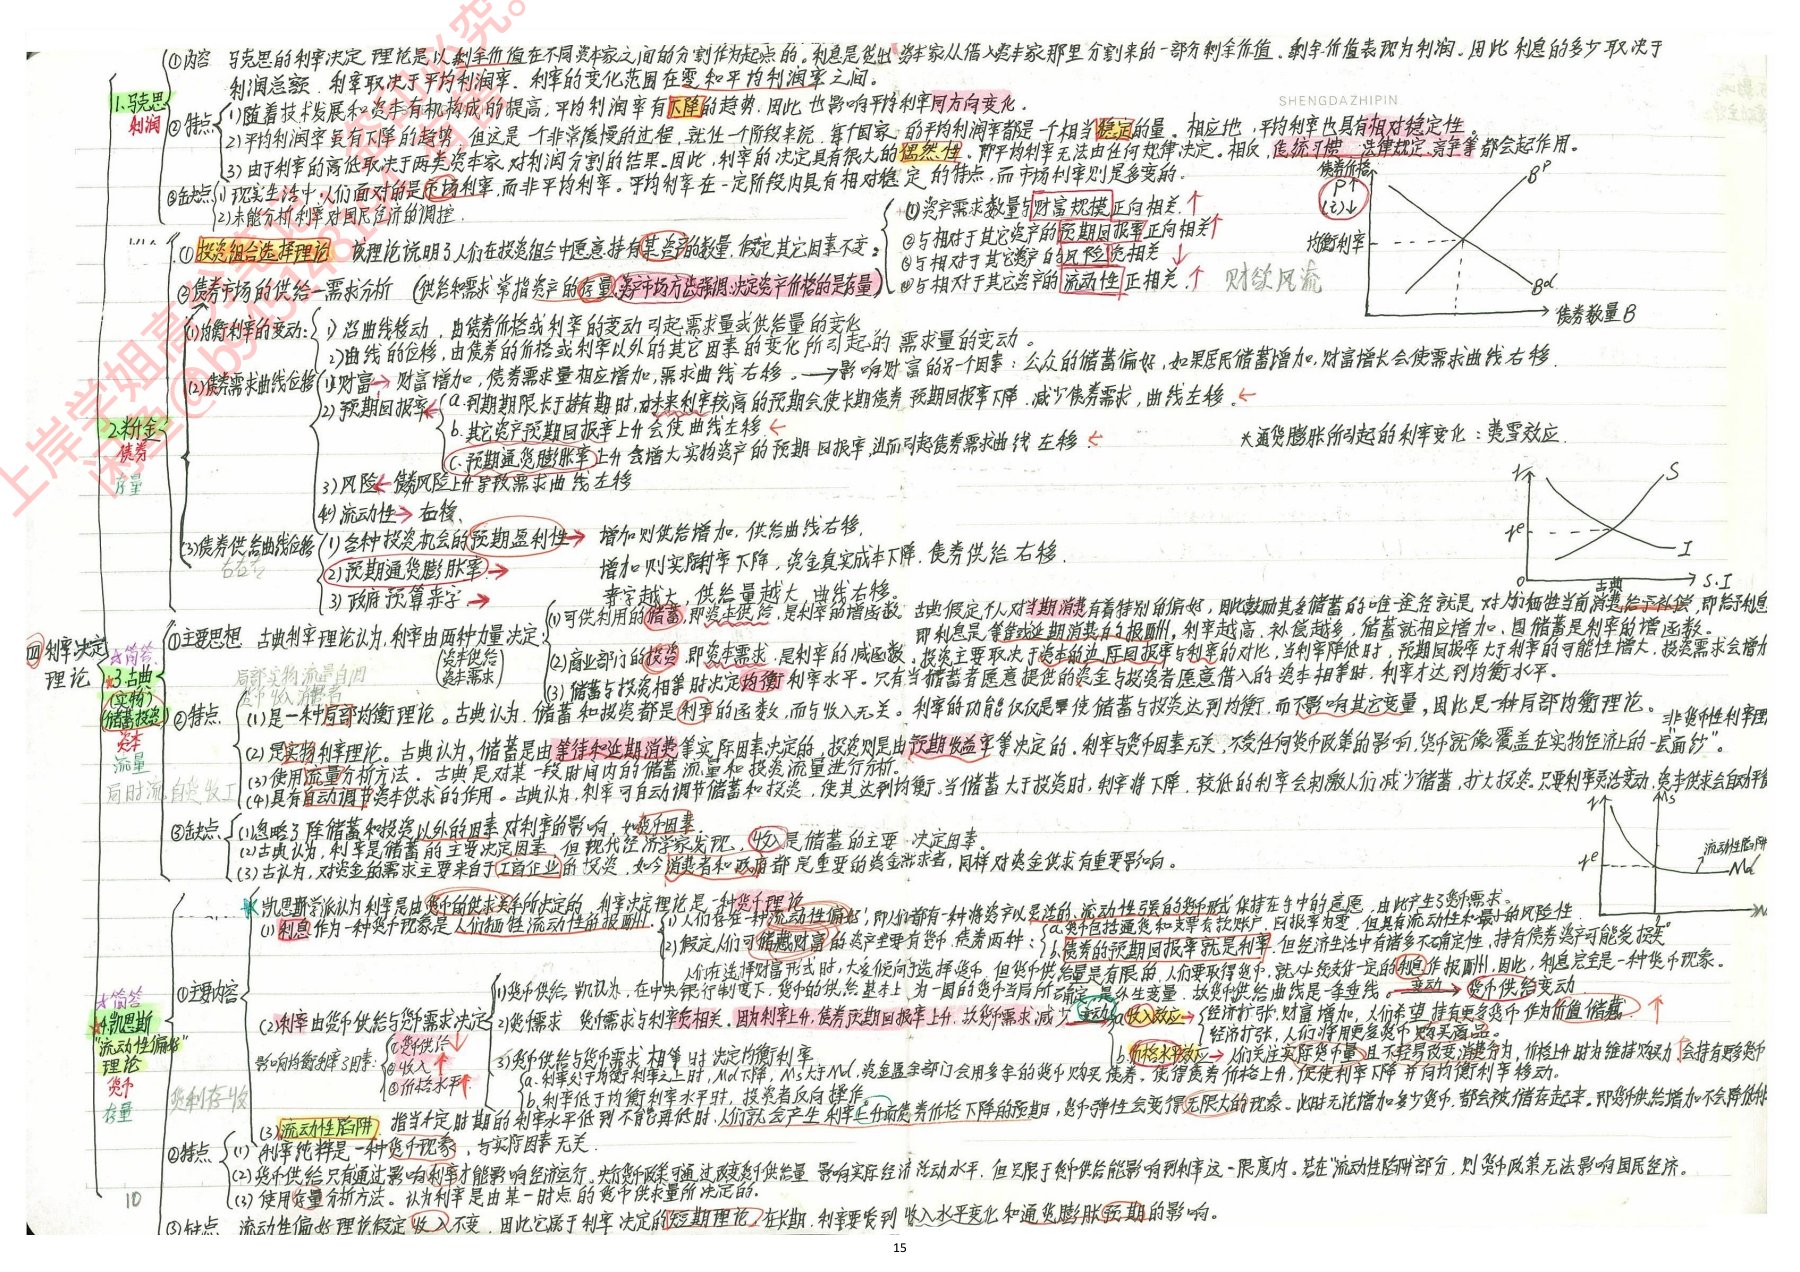 SHENGDAZHIPIN
四 利率决定理论
1.马克思
利润
①内容 马克思的利率决定理论是以剩余价值在不同资本家之间的分割作为起点的。利息是贷出资本家从借入资本家那里分割来的一部分剩余价值。剩余价值表现为利润。因此利息的多少取决于
利润总额,利率取决于平均利润率。利率的变化范围在零和平均利润率之间。
②特点
1)随着技术发展和资本有机构成的提高,平均利润率有下降的趋势,因此也影响平均利率同方向变化.
2)平均利润率虽有下降的趋势,但这是一个非常缓慢的过程,就任一个阶段来说,每个国家的平均利润率都是一个相当稳定的量。相应地,平均利率也具有相对稳定性。
3)由于利率的高低取决于两类资本家对利润分割的结果。因此,利率的决定具有很大的偶然性,即平均利率无法由任何规律决定。相反,传统习惯、法律规定、竞争等都会起作用。
③缺点
1)现实生活中,人们面对的是市场利率,而非平均利率。平均利率在一定阶段内具有相对稳定的特点,而市场利率则是多变的.
2)未能分析利率对国民经济的调控.
2.可贷资金
债券
存量
①投资组合选择理论 该理论说明了人们在投资组合中愿意持有某资产的数量,假定其它因素不变:
①资产需求数量与财富规模正向相关.↑
②与相对于其它资产的预期回报率正向相关↑
③与相对于其它资产的风险负相关↓
④与相对于其它资产的流动性正相关.↑ 财欲风流
②债券市场的供给-需求分析 (供给和需求常指资产的存量,资产市场方法强调:决定资产价格的是存量)
(1)均衡利率的变动:
1)沿曲线移动,由债券价格或利率的变动引起需求量或供给量的变化
2)曲线的位移,由债券的价格或利率以外的其它因素的变化所引起的需求量的变动。
(2)债券需求曲线位移
1)财富→财富增加,债券需求量相应增加,需求曲线右移。→影响财富的另一个因素:公众的储蓄偏好,如果居民储蓄增加,财富增长会使需求曲线右移.
2)预期回报率←
a.到期期限长于持有期时,对未来利率较高的预期会使长期债券预期回报率下降,减少债券需求,曲线左移。←
b.其它资产预期回报率上升会使曲线左移←
c.预期通货膨胀率上升会增大实物资产的预期回报率,进而引起债券需求曲线左移.←
大通货膨胀所引起的利率变化:费雪效应.
3)风险←债券风险上升导致需求曲线左移
4)流动性→右移.
(3)债券供给曲线位移
1)各种投资机会的预期盈利性→ 增加则供给增加,供给曲线右移.
2)预期通货膨胀率→ 增加则实际利率下降,资金真实成本下降,债券供给右移.
3)政府预算赤字→ 赤字越大,供给量越大,曲线右移。
债券价格
P↑
(i)↓
均衡利率
Bᵖ
Bd
债券数量B
☆简答
3.古典
(实物)
储蓄投资
资本
流量
局时流自货收工
①主要思想 古典利率理论认为,利率由两种力量决定:
(资本供给
资本需求)
(1)可供利用的储蓄,即资本供给,是利率的增函数。古典假定个人对当期消费有着特别的偏好,因此鼓励其多储蓄的唯一途径就是,对人们牺牲当前消费给予补偿,即给予利息
即利息是等待或延期消费的报酬,利率越高,补偿越多,储蓄就相应增加,因储蓄是利率的增函数。
(2)商业部门的投资,即资本需求,是利率的减函数,投资主要取决于资本的边际回报率与利率的对比,当利率降低时,预期回报率大于利率的可能性增大,投资需求会增加
(3)储蓄与投资相等时决定均衡利率水平。只有当储蓄者愿意提供的资金与投资者愿意借入的资本相等时,利率才达到均衡水平。
②特点
(1)是一种局部均衡理论。古典认为,储蓄和投资都是利率的函数,而与收入无关。利率的功能仅仅是要使储蓄与投资达到均衡,而不影响其它变量,因此是一种局部均衡理论。
=非货币性利率理
(2)是实物利率理论。古典认为,储蓄是由等待和延期消费等实际因素决定的,投资则是由预期收益率等决定的,利率与货币因素无关,不受任何货币政策的影响,货币就像覆盖在实物经济上的一层"面纱"。
(3)使用流量分析方法。古典是对某一段时间内的储蓄流量和投资流量进行分析。
(4)具有自动调节资本供求的作用。古典认为,利率可自动调节储蓄和投资,使其达到均衡。当储蓄大于投资时,利率将下降,较低的利率会刺激人们减少储蓄,扩大投资。只要利率灵活变动,资本供求会自动平衡
③缺点
(1)忽略了除储蓄和投资以外的因素对利率的影响,如货币因素.
(2)古典认为,利率是储蓄的主要决定因素,但现代经济学家发现,收入是储蓄的主要决定因素。
(3)古认为,对资金的需求主要来自于工商企业的投资,如今消费者和政府都是重要的资金需求者,同样对资金供求有重要影响。
r
S
rᵉ
I
O
古典
S.I
☆简答
4.凯恩斯
"流动性偏好"
理论
货币
存量
货利存收
凯恩斯学派认为利率是由货币的供求关系所决定的,利率决定理论是一种货币理论
①主要内容
(1)利息作为一种货币现象是人们牺牲流动性的报酬.
1)人们存在一种"流动性偏好",即人们都有一种将资产以灵活的、流动性强的货币形式保持在手中的意愿,由此产生了货币需求。
2)假定人们可储藏财富的资产主要有货币、债券两种:
a.货币包括通货和支票存款账户,回报率为零,但具有流动性和最小的风险性.
b.债券的预期回报率就是利率,但经济生活中有诸多不确定性,持有债券资产可能受损失
人们在选择财富形式时,大家倾向于选择货币,但货币供给量是有限的,人们要取得货币,就必须支付一定的利息作报酬,因此,利息完全是一种货币现象。
(2)利率由货币供给与货币需求决定
影响均衡利率3因素:
①货币供给↓
②收入↑
③价格水平↑
1)货币供给 凯认为,在中央银行制度下,货币的供给基本上为一国的货币当局所控制,是外生变量,故货币供给曲线是一条垂线。变动→货币供给变动
2)货币需求 货币需求与利率负相关。因为利率上升,债券预期回报率上升,故货币需求减少 变动
a.收入效应→经济扩张,财富增加,人们希望持有更多货币作为价值储藏↑
经济扩张,人们将用更多货币购买商品。
b.价格水平效应→人们关注实际货币量,且不轻易改变消费行为,价格上升时为维持购买力,会持有更多货币
3)货币供给与货币需求相等时决定均衡利率
a.利率处于均衡利率之上时,Md下降,Ms大于Md,资金盈余部门会用多余的货币购买债券,使得债券价格上升,促使利率下降并向均衡利率移动.
b.利率低于均衡利率水平时,投资者反向操作.
(3)流动性陷阱 指当一定时期的利率水平低到不能再低时,人们就会产生利率上升而债券价格下降的预期,货币弹性会变得无限大的现象。此时无论增加多少货币,都会被储存起来。即货币供给增加不会降低利
②特点
(1)利率纯粹是一种货币现象,与实际因素无关.
(2)货币供给只有通过影响利率才能影响经济运行。央行货币政策可通过改变货币供给量影响实际经济活动水平,但只限于货币供给能影响到利率这一限度内。若在"流动性陷阱"部分,则货币政策无法影响国民经济。
(3)使用存量分析方法。认为利率是由某一时点的货币供求量所决定的.
③缺点 流动性偏好理论假定收入不变,因此它属于利率决定的短期理论.在长期,利率要受到收入水平变化和通货膨胀预期的影响。
r
Ms
流动性陷阱
rᵉ
Md
10
15